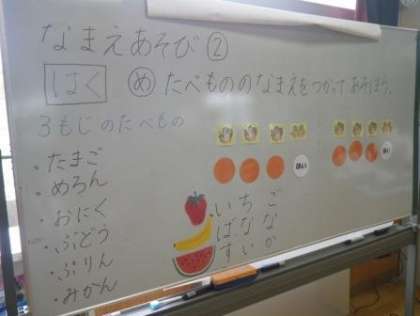 なまえあそび②
はく ㋱たべもののなまえをつかってあそぼう。
3もじのたべもの
・たまご
・めろん
・おにく
・ぶどう
・ぷりん
・みかん
・いちご
ばなな
すいか